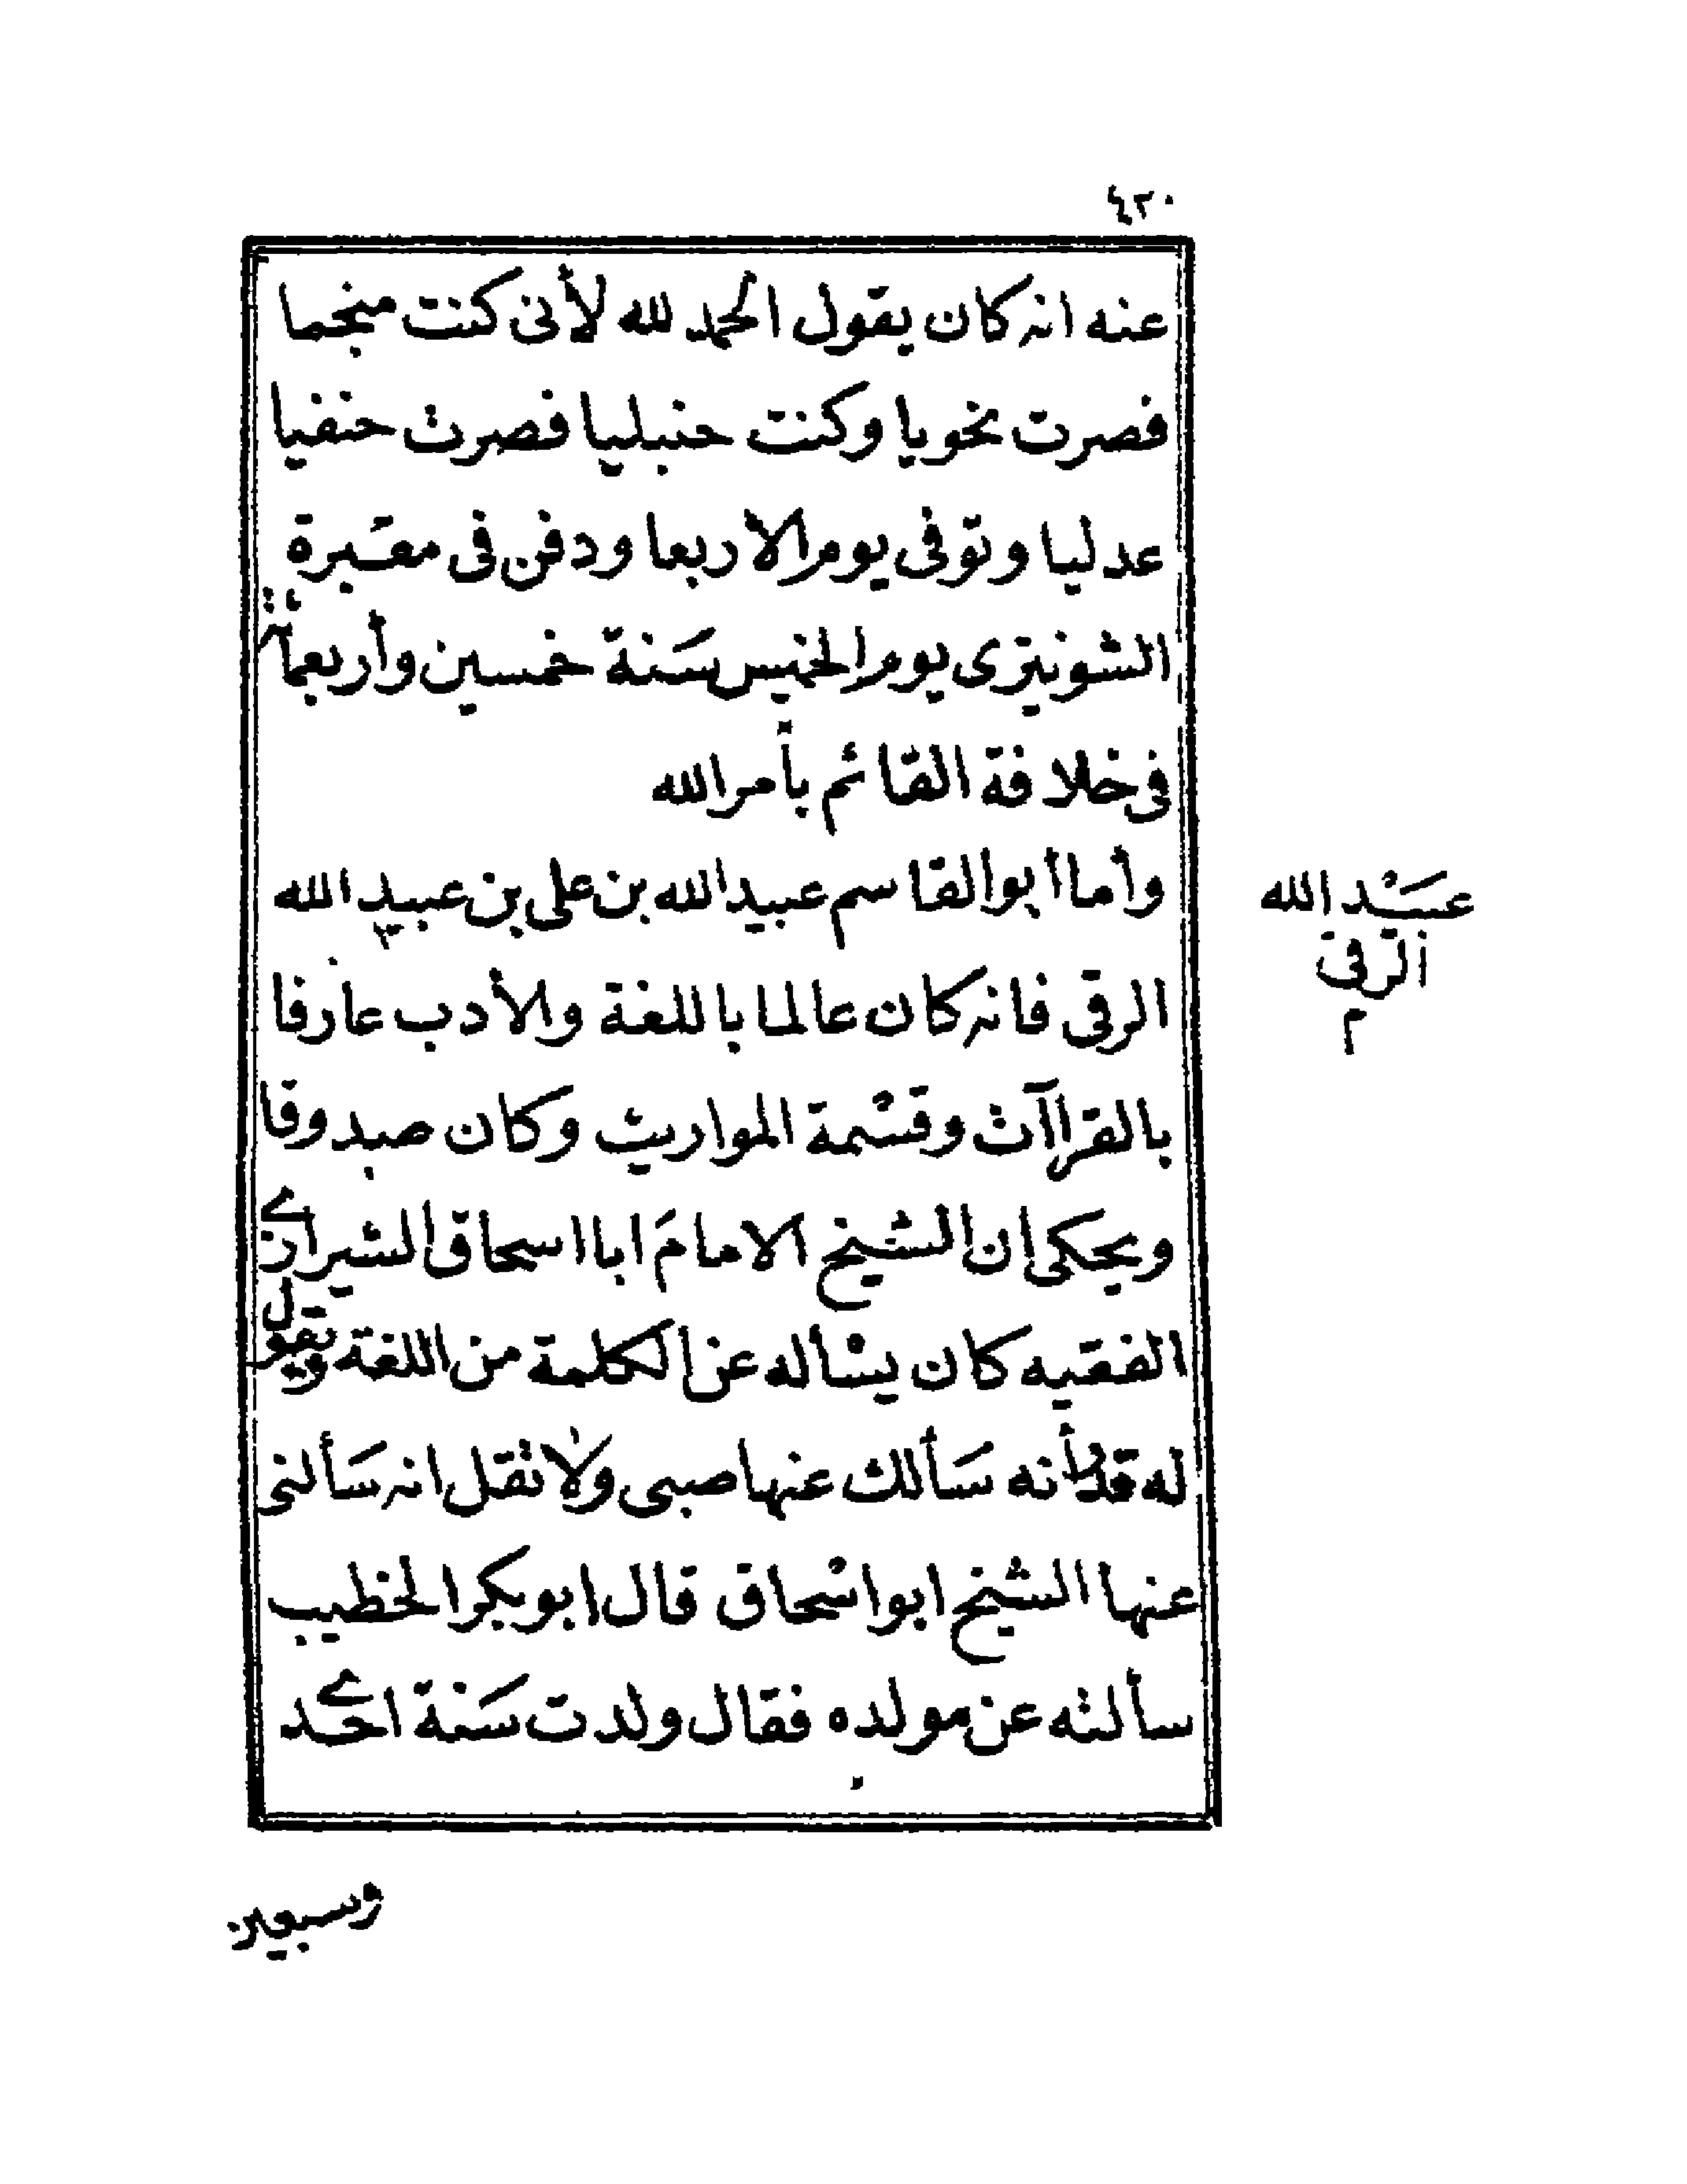 ٤٢٠
عنه انه كان يقول الحمد لله لأنى كنت منجما
فصرت نحويا وكنت حنبليا فصرت حنفيا
عدليا وتوفى يوم الاربعا ودفن فى مقبرة
الشونيزى يوم الخميس سنة خمسين وأربعمائة
فى خلافة القائم بأمر الله
وأما أبو القاسم عبيد الله بن على بن عبيد الله
عبيد الله
الرقى
م
الرقى فانه كان عالما باللغة والأدب عارفا
بالقراآت وقسمة المواريث وكان صدوقا
ويحكى ان الشيخ الامام ابا اسحاق الشيرازى
الفقيه كان يسأله عن الكلمة من اللغة ويقول
له قد أنه سألك عنها صبى ولا تقل انه سألنى
عنها الشيخ ابو اسحاق قال ابو بكر الخطيب
سألته عن مولده فقال ولدت سنة احدى
وسبعين